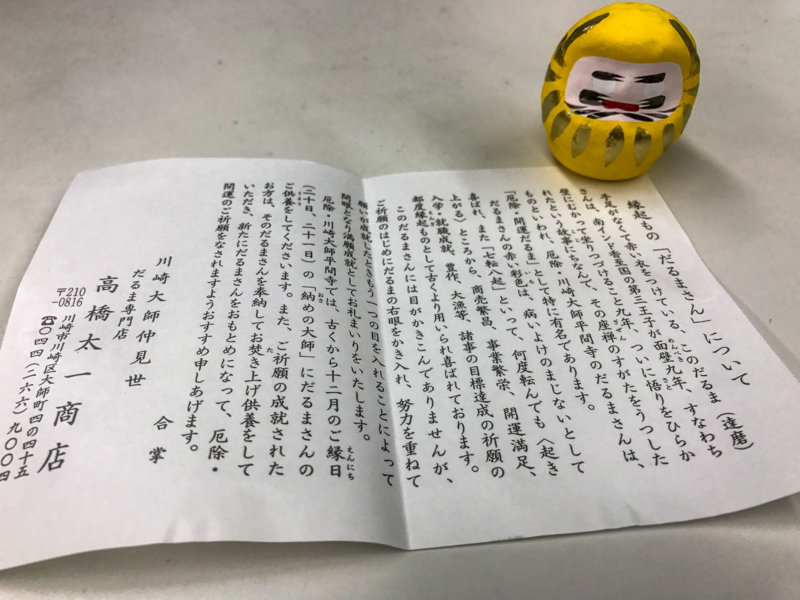 縁起もの「だるまさん」について
手足がなくて赤い衣をつけている、このだるま(達磨)
さんは、南インド香至国の第三王子が面壁九年、すなわち
壁にむかって坐りつづけること九年、ついに悟りをひらか
れたという故事にちなんで、その座禅のすがたをうつした
ものといわれ、厄除・川崎大師平間寺のだるまさんは、
「厄除・開運だるま」として特に有名であります。
だるまさんの赤い彩色は、病いよけのまじないとして
喜ばれ、また「七転八起」といって、何度転んでも〈起き
上がる〉ところから、商売繁昌、事業繁栄、開運満足、
入学・就職成就、豊作、大漁等、諸事の目標達成の祈願の
都度縁起ものとして古くより用いられ喜ばれております。
このだるまさんには目がかきこんでありませんが、
ご祈願のはじめにだるまの右眼をかき入れ、努力を重ねて
願いが成就したときもう一つの目を入れることによって
開眼となり満願成就としてお礼まいりをいたします。
厄除・川崎大師平間寺では、古くから十二月のご縁日
(二十日、二十一日)の「納めの大師」にだるまさんの
ご供養をしてくださいます。また、ご祈願の成就された
お方は、そのだるまさんを奉納してお焚き上げ供養をして
いただき、新たにだるまさんをおもとめになって、厄除・
開運のご祈願をなされますようおすすめ申しあげます。
合掌
川崎大師仲見世
だるま専門店
高橋太一商店
〒210-0816
川崎市川崎区大師町四の四十五
☎〇四四(二六六)九〇〇四